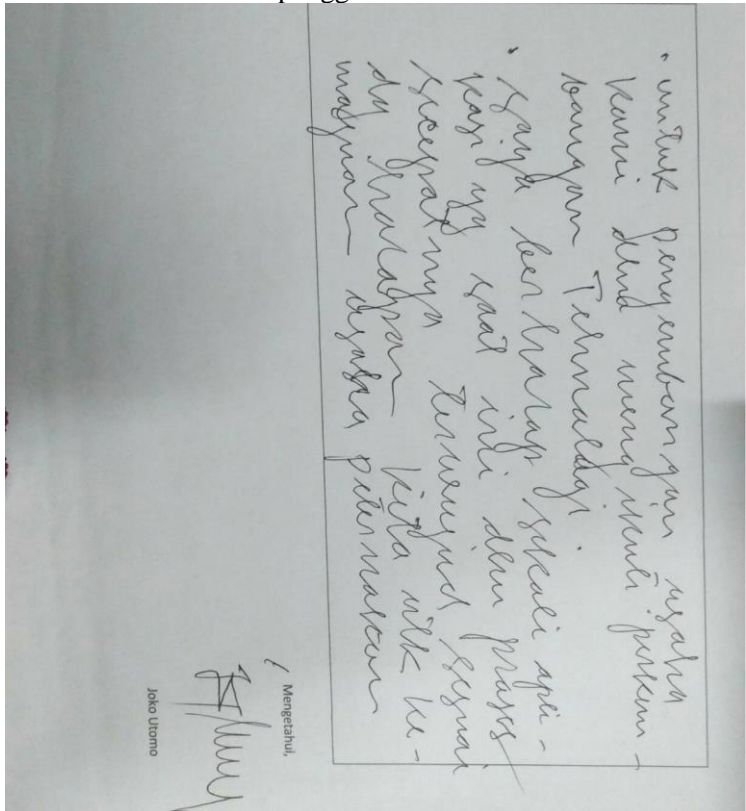 • untuk pengembangan usaha
kami dlm mengikuti perkem-
bangan Tehnologi.
• saya berharap sekali apli-
kasi yg saat ini dlm proses
secepatnya terwujud sesuai
dg harapan kita utk ke-
majuan usaha peternakan
Mengetahui,
Joko Utomo